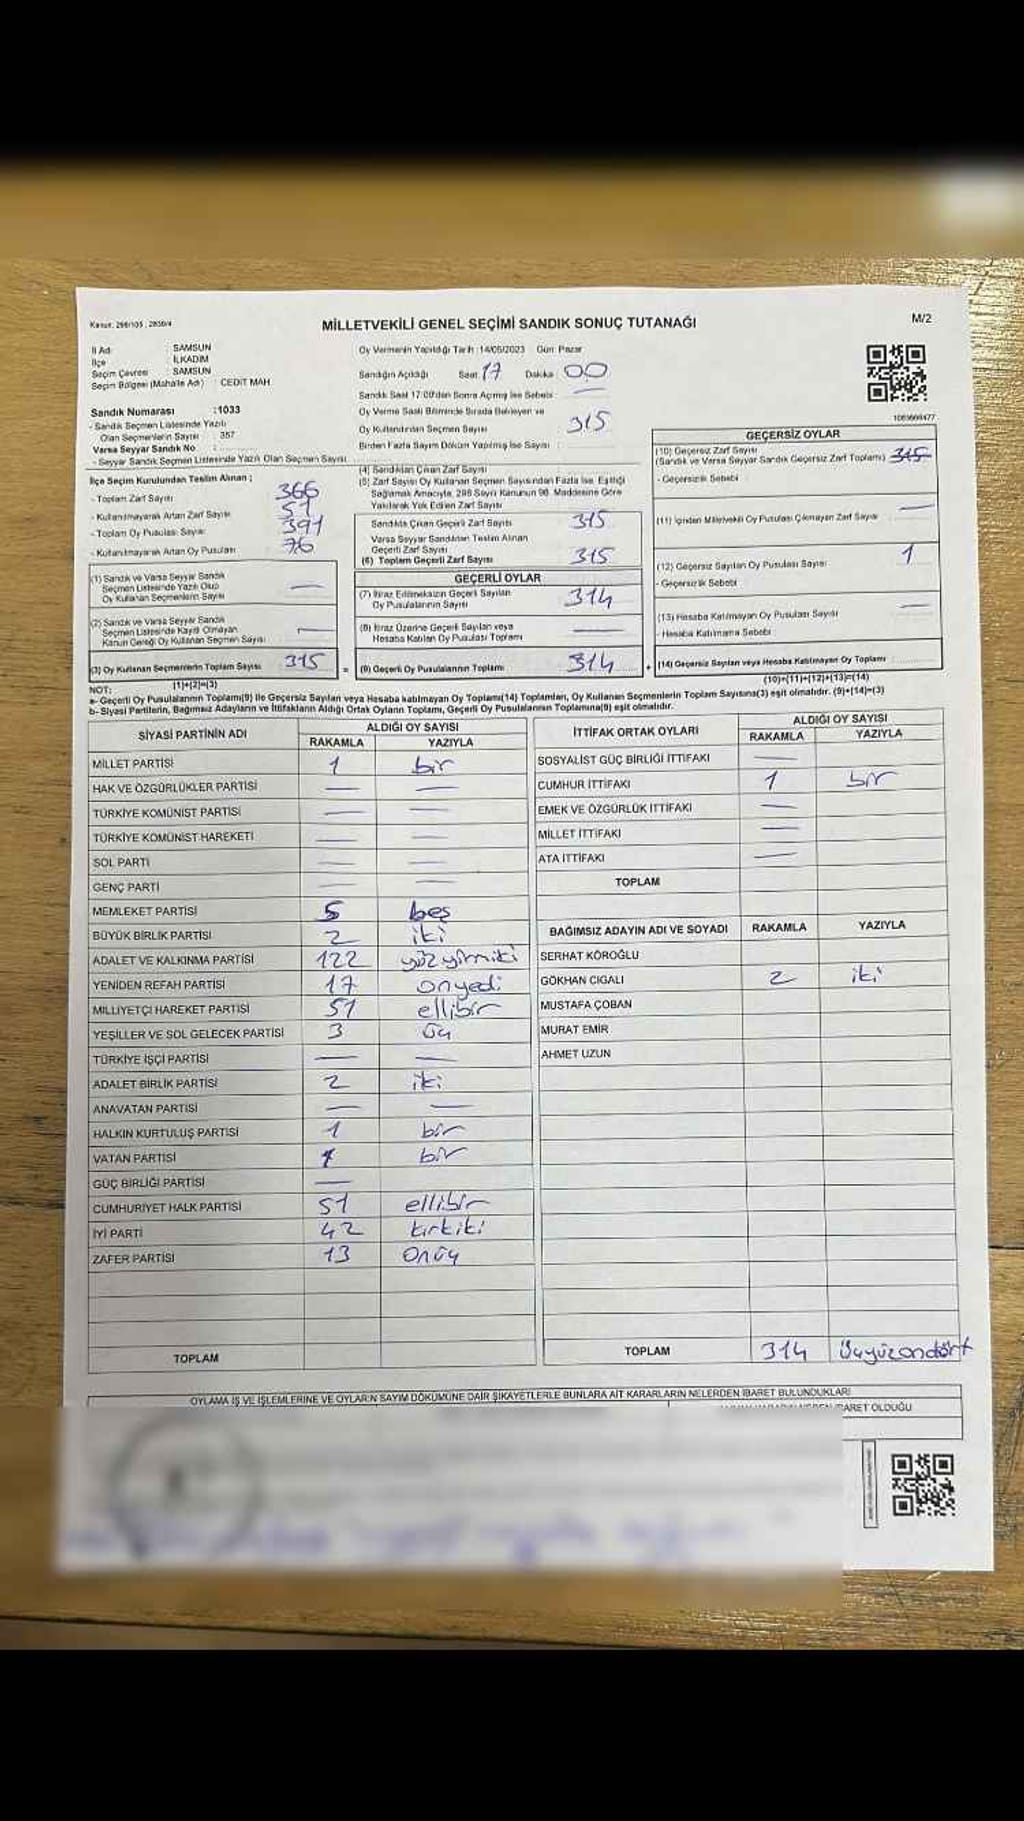 Kanun: 298/105 , 2839/4
MİLLETVEKİLİ GENEL SEÇİMİ SANDIK SONUÇ TUTANAĞI
M/2
İl Adı : SAMSUN
İlçe : İLKADIM
Seçim Çevresi : SAMSUN
Seçim Bölgesi (Mahalle Adı) : CEDİT MAH
Sandık Numarası :1033
- Sandık Seçmen Listesinde Yazılı
Olan Seçmenlerin Sayısı : 357
Varsa Seyyar Sandık No :
- Seyyar Sandık Seçmen Listesinde Yazılı Olan Seçmen Sayısı
Oy Vermenin Yapıldığı Tarih :14/05/2023 Gün: Pazar
Sandığın Açıldığı Saat 17 Dakika 00
Sandık Saat 17:00'den Sonra Açılmış İse Sebebi : —
Oy Verme Saati Bitiminde Sırada Bekleyen ve
Oy Kullandırılan Seçmen Sayısı 315
Birden Fazla Sayım Döküm Yapılmış İse Sayısı :
1083666477
İlçe Seçim Kurulundan Teslim Alınan ;
- Toplam Zarf Sayısı 366
- Kullanılmayarak Artan Zarf Sayısı 51
- Toplam Oy Pusulası Sayısı 391
- Kullanılmayarak Artan Oy Pusulası 76
(1) Sandık ve Varsa Seyyar Sandık
Seçmen Listesinde Yazılı Olup
Oy Kullanan Seçmenlerin Sayısı —
(2) Sandık ve Varsa Seyyar Sandık
Seçmen Listesinde Kayıtlı Olmayan
Kanun Gereği Oy Kullanan Seçmen Sayısı —
(3) Oy Kullanan Seçmenlerin Toplam Sayısı 315 =
(1)+(2)=(3)
(4) Sandıktan Çıkan Zarf Sayısı
(5) Zarf Sayısı Oy Kullanan Seçmen Sayısından Fazla İse, Eşitliği
Sağlamak Amacıyla, 298 Sayılı Kanunun 98. Maddesine Göre
Yakılarak Yok Edilen Zarf Sayısı
Sandıkta Çıkan Geçerli Zarf Sayısı 315
Varsa Seyyar Sandıktan Teslim Alınan
Geçerli Zarf Sayısı
(6) Toplam Geçerli Zarf Sayısı 315
GEÇERLİ OYLAR
(7) İtiraz Edilmeksizin Geçerli Sayılan
Oy Pusulalarının Sayısı 314
(8) İtiraz Üzerine Geçerli Sayılan veya
Hesaba Katılan Oy Pusulası Toplamı —
(9) Geçerli Oy Pusulalarının Toplamı 314 +
GEÇERSİZ OYLAR
(10) Geçersiz Zarf Sayısı
(Sandık ve Varsa Seyyar Sandık Geçersiz Zarf Toplamı) 315
- Geçersizlik Sebebi
(11) İçinden Milletvekili Oy Pusulası Çıkmayan Zarf Sayısı —
(12) Geçersiz Sayılan Oy Pusulası Sayısı 1
- Geçersizlik Sebebi
(13) Hesaba Katılmayan Oy Pusulası Sayısı —
- Hesaba Katılmama Sebebi
(14) Geçersiz Sayılan veya Hesaba Katılmayan Oy Toplamı
(10)+(11)+(12)+(13)=(14)
NOT:
a- Geçerli Oy Pusulalarının Toplamı(9) ile Geçersiz Sayılan veya Hesaba katılmayan Oy Toplamı(14) Toplamları, Oy Kullanan Seçmenlerin Toplam Sayısına(3) eşit olmalıdır. (9)+(14)=(3)
b- Siyasi Partilerin, Bağımsız Adayların ve İttifakların Aldığı Ortak Oyların Toplamı, Geçerli Oy Pusulalarının Toplamına(9) eşit olmalıdır.
SİYASİ PARTİNİN ADI ALDIĞI OY SAYISI
RAKAMLA YAZIYLA
MİLLET PARTİSİ 1 bir
HAK VE ÖZGÜRLÜKLER PARTİSİ — —
TÜRKİYE KOMÜNİST PARTİSİ — —
TÜRKİYE KOMÜNİST HAREKETİ — —
SOL PARTİ — —
GENÇ PARTİ — —
MEMLEKET PARTİSİ 5 beş
BÜYÜK BİRLİK PARTİSİ 2 iki
ADALET VE KALKINMA PARTİSİ 122 yüzyirmiki
YENİDEN REFAH PARTİSİ 17 onyedi
MİLLİYETÇİ HAREKET PARTİSİ 51 ellibir
YEŞİLLER VE SOL GELECEK PARTİSİ 3 üç
TÜRKİYE İŞÇİ PARTİSİ — —
ADALET BİRLİK PARTİSİ 2 iki
ANAVATAN PARTİSİ — —
HALKIN KURTULUŞ PARTİSİ 1 bir
VATAN PARTİSİ 1 bir
GÜÇ BİRLİĞİ PARTİSİ —
CUMHURİYET HALK PARTİSİ 51 ellibir
İYİ PARTİ 42 kırkiki
ZAFER PARTİSİ 13 onüç
TOPLAM
İTTİFAK ORTAK OYLARI ALDIĞI OY SAYISI
RAKAMLA YAZIYLA
SOSYALİST GÜÇ BİRLİĞİ İTTİFAKI —
CUMHUR İTTİFAKI 1 bir
EMEK VE ÖZGÜRLÜK İTTİFAKI —
MİLLET İTTİFAKI —
ATA İTTİFAKI —
TOPLAM
BAĞIMSIZ ADAYIN ADI VE SOYADI RAKAMLA YAZIYLA
SERHAT KÖROĞLU
GÖKHAN CIGALI 2 iki
MUSTAFA ÇOBAN
MURAT EMİR
AHMET UZUN
TOPLAM 314 Üçyüzondört
OYLAMA İŞ VE İŞLEMLERİNE VE OYLARIN SAYIM DÖKÜMÜNE DAİR ŞİKAYETLERLE BUNLARA AİT KARARLARIN NELERDEN İBARET BULUNDUKLARI
İBARET OLDUĞU